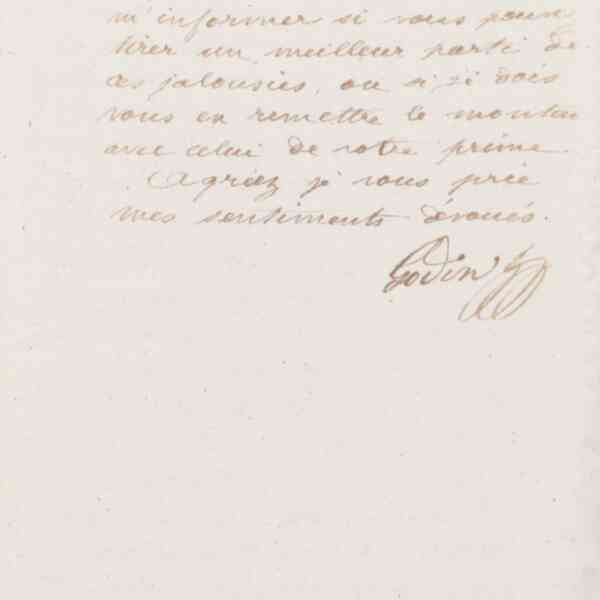 m'informer si vous pouvez
tirer un meilleur parti de
ces jalousies, ou si je dois
vous en remettre le montant
avec celui de votre prime.
Agréez je vous prie
mes sentiments dévoués.
Godin